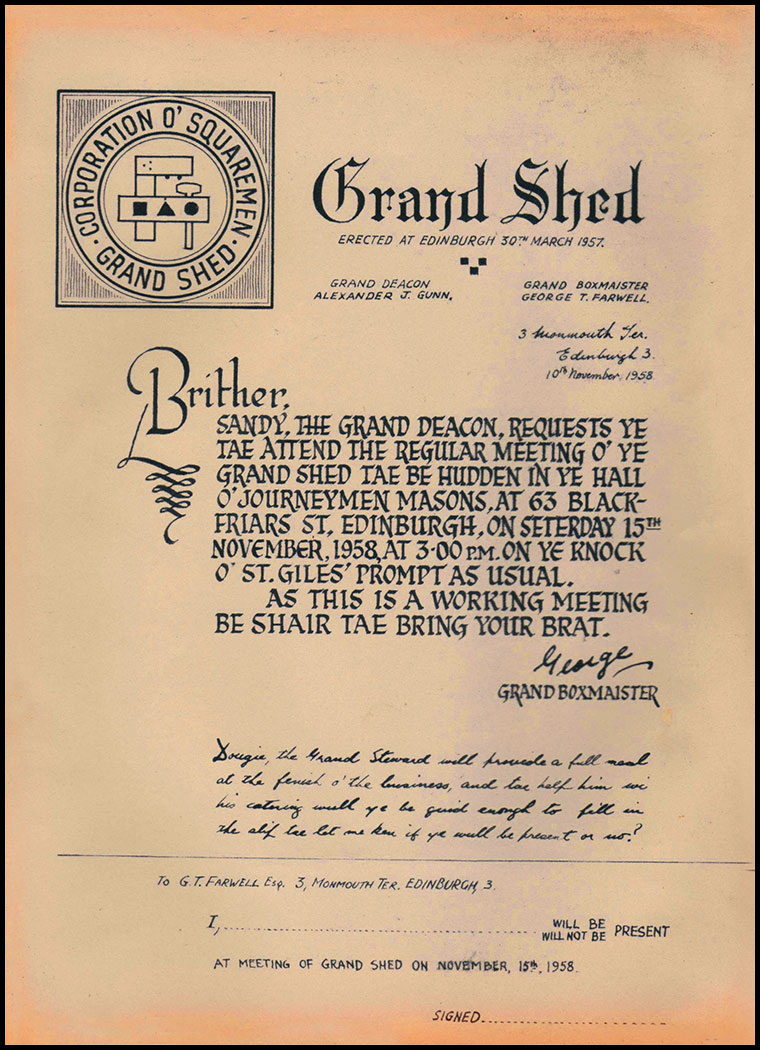 CORPORATION O' SQUAREMEN
· GRAND SHED ·
Grand Shed
ERECTED AT EDINBURGH 30TH MARCH 1957.
GRAND DEACON
ALEXANDER J. GUNN.
GRAND BOXMAISTER
GEORGE T. FARWELL.
3 Monmouth Ter.
Edinburgh 3.
10th November, 1958.
Brither,
SANDY, THE GRAND DEACON, REQUESTS YE
TAE ATTEND THE REGULAR MEETING O' YE
GRAND SHED TAE BE HUDDEN IN YE HALL
O' JOURNEYMEN MASONS, AT 63 BLACK-
FRIARS ST, EDINBURGH, ON SETERDAY 15TH
NOVEMBER, 1958, AT 3·00 P.M. ON YE KNOCK
O' ST. GILES' PROMPT AS USUAL.
AS THIS IS A WORKING MEETING
BE SHAIR TAE BRING YOUR BRAT.
George
GRAND BOXMAISTER
Dougie, the Grand Steward will provide a full meal
at the fenish o' the business, and tae help him wi
his catering wull ye be guid enough to fill in
the slip tae let me ken if ye wull be present or no?
To G.T. FARWELL Esq. 3, MONMOUTH TER. EDINBURGH, 3.
I,.......................... WILL BE
WILL NOT BE PRESENT
AT MEETING OF GRAND SHED ON NOVEMBER, 15th, 1958.
SIGNED..........................